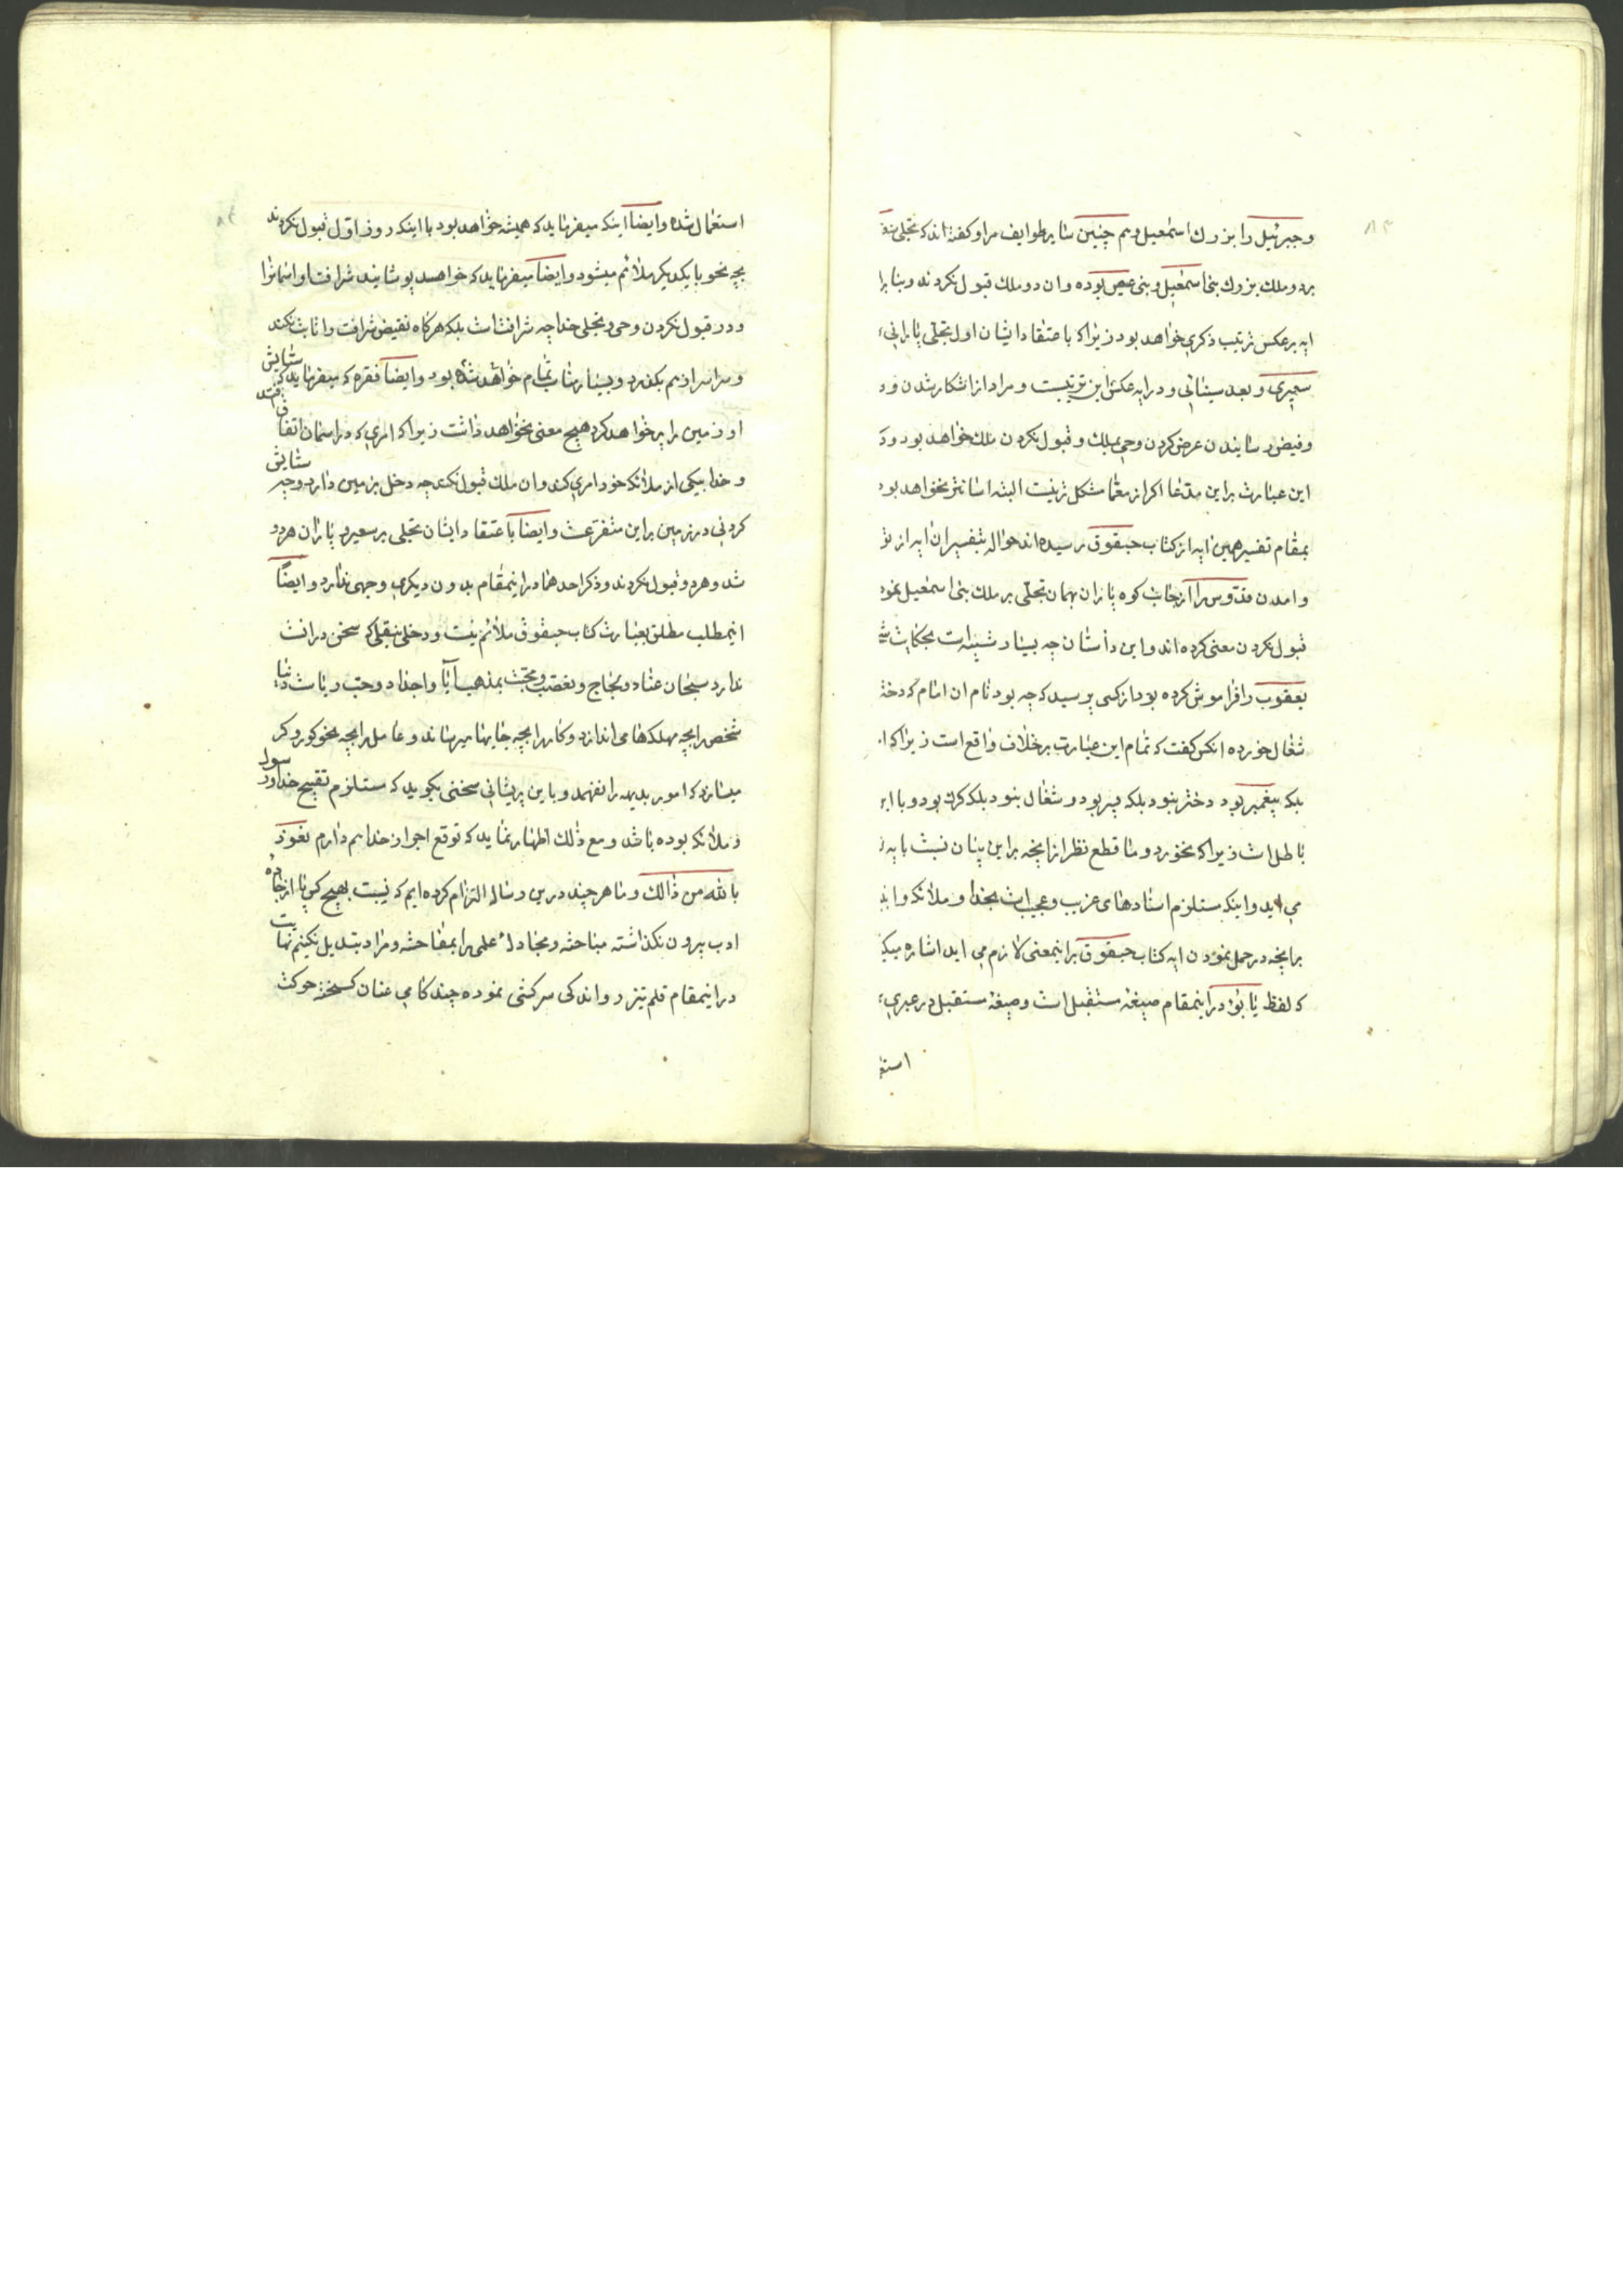 ۸۳
وجبرئیل را بزرك اسمعیل وهم چنین سایر طوایف مراو كفته اند كه تجلی
بر دو ملك بزرك بنی اسمعیل و بنی عیص بوده وان دو ملك قبول نكردند و بنابرا
ایه برعكس ترتیب ذكری خواهد بود زیرا كه باعتقاد ایشان اول تجلی پارانی
سعیری و بعد سینائی و در ایه عكس این ترتیبست و مراد از اشكار شدن و د
وفیض رسانیدن عرض كردن وحی بملك و قبول نكردن ملك خواهد بود و د
این عبارت براین مدعا اكر از معما مشكل تر نیست البته اسانتر نخواهد بود
بمقام تفسیر همین ایه از كتاب حبقوق رسیده اند حواله بتفسیر ان ایه از تو
وامدن قدوس را از جانب كوه پاران بهمان تجلی بر ملك بنی اسمعیل نمود
قبول نكردن معنی كرده اند واین داستان چه بسیار شبیه است بحكایت
یعقوب را فراموش كرده بود از كسی پرسید كه چه بود نام ان امام كه دختر
شغال خورده انكس كفت كه تمام این عبارت برخلاف واقع است زیرا كه ا
بلكه پیغمبر بود دختر نبود بلكه پسر بود و شغال نبود بلكه كرك بود و با این
باطل است زیرا كه نخورد و ما قطع نظر از انچه براین بیان نسبت بایه
می اید واینكه مستلزم اسنادهای غریب وعجیب است بخدا و ملائكه وا
برانچه در حمل نمودن ایه كتاب حبقوق براینمعنی لازم می اید اشاره میك
كه لفظ یابؤ در اینمقام صیغهٔ مستقبل است وصیغهٔ مستقبل در عبری
استع
۸۴
استعمال شده وایضا اینكه میفرماید كه همیشه خواهد بود با اینكه روز اول قبول نكردند
بچه نحو با یكدیكر ملائم میشود وایضا میفرماید كه خواهد پوشانید شرافت او اسمانرا
ودر قبول نكردن وحی و تجلی خدا چه شرافت است بلكه هركاه نقیض شرافت را ثابت نكند
وسراسر از هم بكذرد و بسیار شاب تمام خواهد شد بود وایضا فقره كه میفرماید كه ستایش
او زمین را پر خواهد كرد هیچ معنی نخواهد داشت زیرا كه امری كه در اسمان اتفاق افتد
و خدا بیكی از ملائكه خود امری كند وان ملك قبول نكند چه دخل بزمین دارد وچه ستایش
كردنی در زمین براین متفرعست وایضا باعتقاد ایشان تجلی بر سعیر و پاران هر دو
شد و هر دو قبول نكردند و ذكر احدهما در اینمقام بدون دیكری وجهی ندارد وایضا
اینمطلب مطلق بعبارت كتاب حبقوق ملائم نیست و دخلی بنقلی كه سخن در انست
ندارد سبحان عناد و لجاج و تعصب و محبت بمذهب آبا واجداد و حب ریاست دنیا
شخص را بچه مهلكها می اندازد و كار را بچه جایها میرساند و عاقل را بچه نحو كور و كر
میسازد كه امور بدیهه را نفهمد و باین پریشانی سخنی بكوید كه مستلزم تقبیح خدا و رسول
و ملائكه بوده باشد و مع ذلك اظهار نماید كه توقع اجر از خدا هم دارم نعوذ
بالله من ذالك و ما هر چند درین رساله التزام كرده ایم كه نسبت بهیچ كس پا از جاده
ادب بیرون نكذاشته مباحثه و مجادلهٔ علمی را بمفاحشه و مراد تبدیل نكنیم نهایت
در اینمقام قلم تیز رو اندكی سركشی نموده چند كامی عنان كسیخته حركت